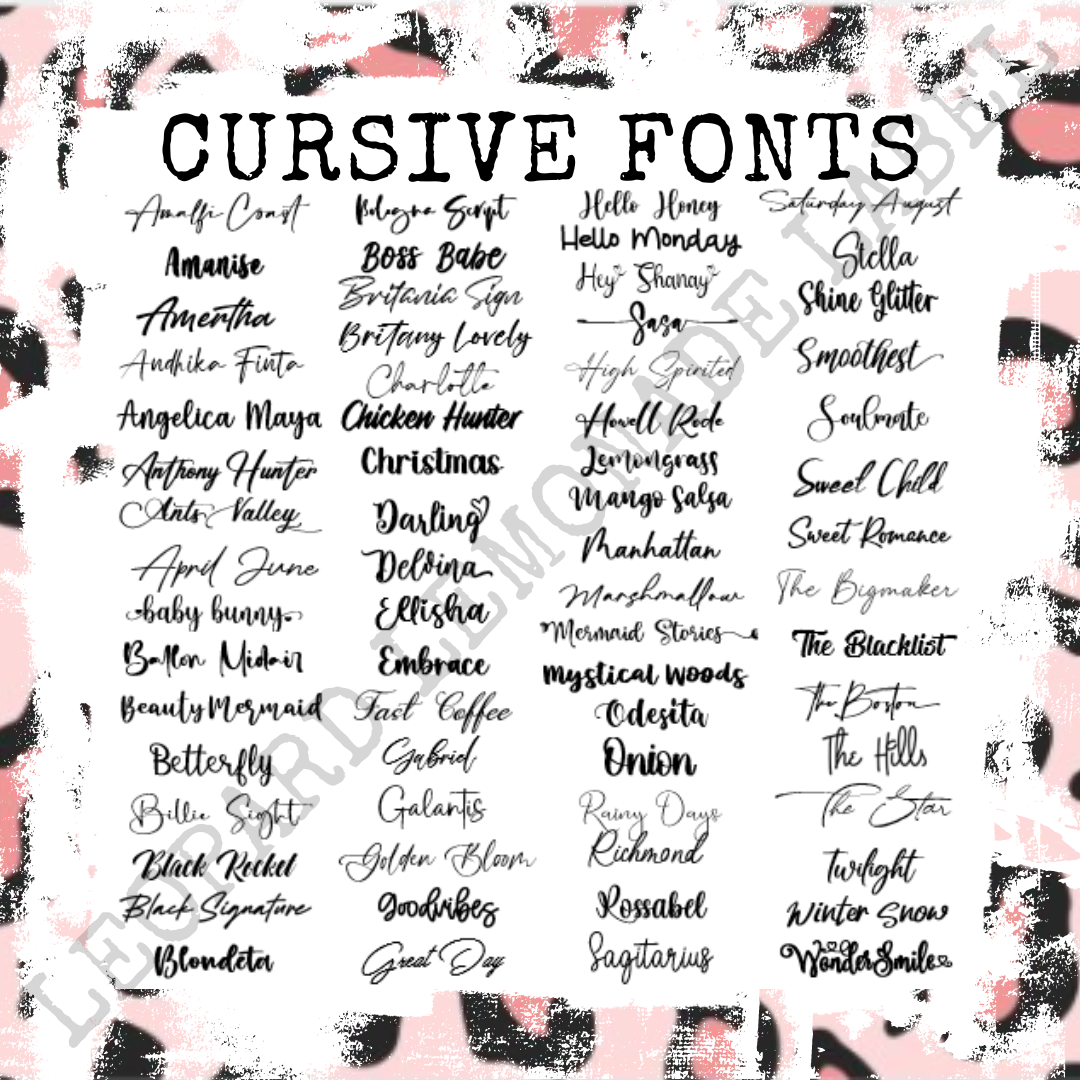 CURSIVE FONTS
Amalfi Coast
Amanise
Amertha
Andhika Finta
Angelica Maya
Anthony Hunter
Ants Valley
April June
baby bunny
Ballon Midair
Beauty Mermaid
Betterfly
Billie Sight
Black Rocket
Black Signature
Blondeta
Bologna Script
Boss Babe
Britania Sign
Britany Lovely
Charlotte
Chicken Hunter
Christmas
Darling
Delvina
Ellisha
Embrace
Fast Coffee
Gabriel
Galantis
Golden Bloom
goodvibes
Great Day
Hello Honey
Hello Monday
Hey Shanay
Sasa
High Spirited
Howell Rode
Lemongrass
Mango Salsa
Manhattan
Marshmallow
Mermaid Stories
Mystical Woods
Odesita
Onion
Rainy Days
Richmond
Rossabel
Sagitarius
Saturday August
Stella
Shine Glitter
Smoothest
Soulmate
Sweet Child
Sweet Romance
The Bigmaker
The Blacklist
The Boston
The Hills
The Star
Twilight
Winter Snow
WonderSmile
LEOPARD LEMONADE LABEL